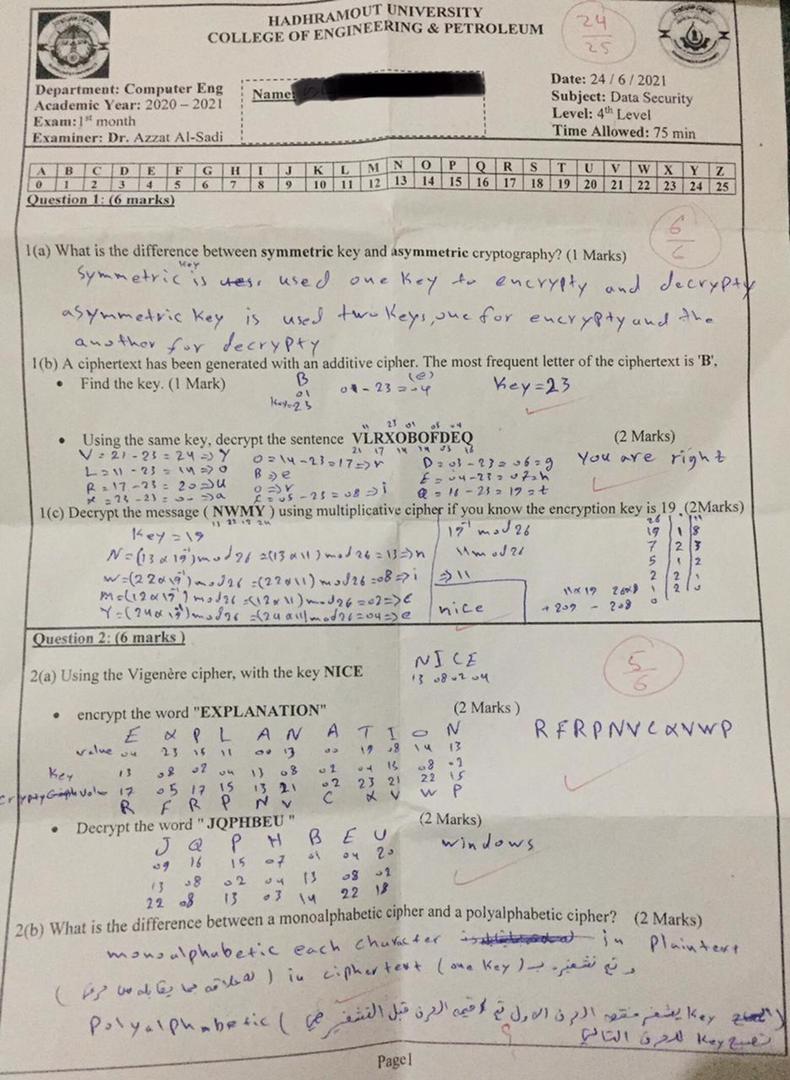 HADHRAMOUT UNIVERSITY
COLLEGE OF ENGINEERING & PETROLEUM
24
25
Department: Computer Eng
Academic Year: 2020 – 2021
Exam: 1st month
Examiner: Dr. Azzat Al-Sadi
Name:
Date: 24 / 6 / 2021
Subject: Data Security
Level: 4th Level
Time Allowed: 75 min
A B C D E F G H I J K L M N O P Q R S T U V W X Y Z
0 1 2 3 4 5 6 7 8 9 10 11 12 13 14 15 16 17 18 19 20 21 22 23 24 25
Question 1: (6 marks)
6
6
1(a) What is the difference between symmetric key and asymmetric cryptography? (1 Marks)
Symmetric key is used one key to encrypty and decrypty
asymmetric key is used two keys, one for encrypty and the
another for decrypty
1(b) A ciphertext has been generated with an additive cipher. The most frequent letter of the ciphertext is 'B'.
• Find the key. (1 Mark)
B
01
key=23
(e)
01 - 23 = 04
Key=23
• Using the same key, decrypt the sentence VLRXOBOFDEQ (2 Marks)
V = 21 - 23 = 24 => Y
L = 11 - 23 = 14 => o
R = 17 - 23 = 20 => u
x = 23 - 23 = 00 => a
O = 14 - 23 = 17 => r
B => e
O => r
F = 05 - 23 = 08 => i
D = 03 - 23 = 06 = g
E = 04 - 23 = 07 = h
Q = 16 - 23 = 19 = t
You are right
1(c) Decrypt the message ( NWMY ) using multiplicative cipher if you know the encryption key is 19. (2Marks)
Key = 19
N = (13 x 19⁻¹) mod 26 = (13 x 11) mod 26 = 13 => n
W = (22 x 19⁻¹) mod 26 = (22 x 11) mod 26 = 08 => i
M = (12 x 19⁻¹) mod 26 = (12 x 11) mod 26 = 02 => c
Y = (24 x 19⁻¹) mod 26 = (24 x 11) mod 26 = 04 => e
19⁻¹ mod 26
11 mod 26
=> 11
nice
Question 2: (6 marks )
5
6
2(a) Using the Vigenère cipher, with the key NICE
N I C E
13 08 02 04
• encrypt the word "EXPLANATION" (2 Marks )
E X P L A N A T I O N
value 04 23 15 11 00 13 00 19 08 14 13
Key 13 08 02 04 13 08 02 04 13 08 02
17 05 17 15 13 21 02 23 21 22 15
R F R P N V C X V W P
RFRPNVCXVWP
• Decrypt the word " JQPHBEU " (2 Marks)
J Q P H B E U
09 16 15 07 01 04 20
13 08 02 04 13 08 02
22 08 13 03 14 22 18
windows
2(b) What is the difference between a monoalphabetic cipher and a polyalphabetic cipher? (2 Marks)
monoalphabetic each character in Plaintext
in ciphertext (one key)
Polyalphabetic
Page1